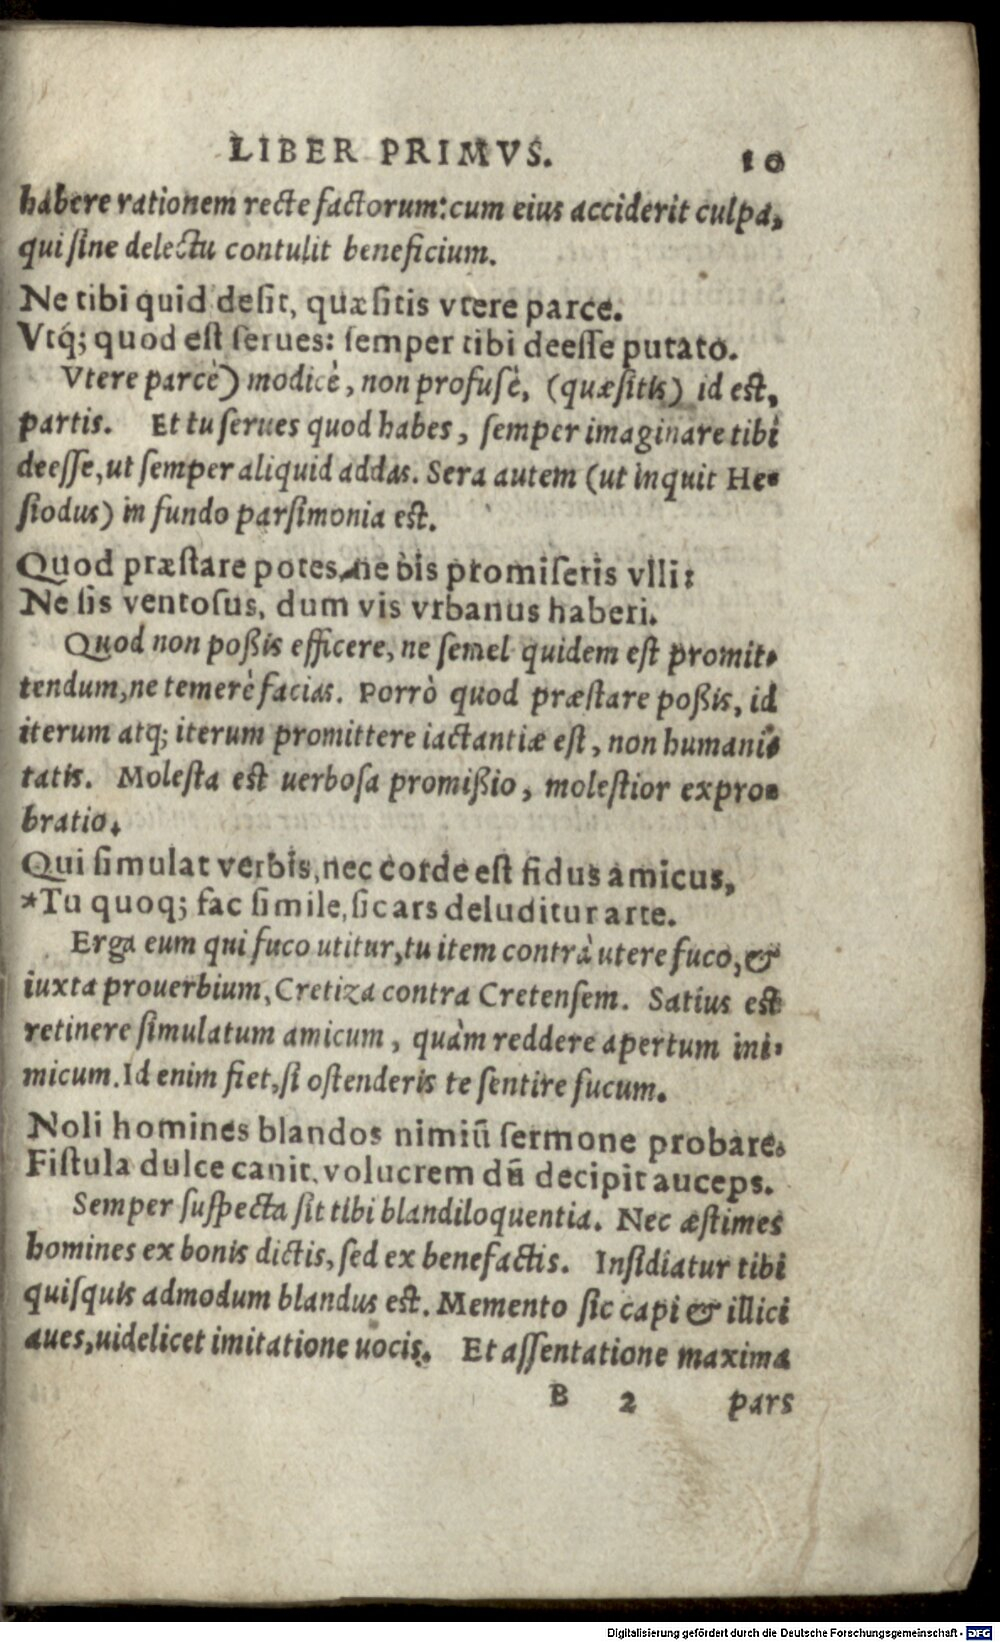 LIBER PRIMVS. 10
habere rationem recte factorum: cum eius acciderit culpa,
qui sine delectu contulit beneficium.
Ne tibi quid desit, quæsitis vtere parce.
Vtq́; quod est serues: semper tibi deesse putato.
Vtere parcè) modicè, non profusè, (quæsitis) id est,
partis. Et tu serues quod habes, semper imaginare tibi
deesse, ut semper aliquid addas. Sera autem (ut inquit He-
siodus) in fundo parsimonia est.
Quod præstare potes, ne bis promiseris vlli:
Ne sis ventosus, dum vis vrbanus haberi.
Quod non poßis efficere, ne semel quidem est promit-
tendum, ne temerè facias. Porrò quod præstare poßis, id
iterum atq; iterum promittere iactantiæ est, non humani-
tatis. Molesta est uerbosa promißio, molestior expro-
bratio.
Qui simulat verbis, nec corde est fidus amicus,
*Tu quoq; fac simile, sic ars deluditur arte.
Erga eum qui fuco utitur, tu item contrà utere fuco, &
iuxta prouerbium, Cretiza contra Cretensem. Satius est
retinere simulatum amicum, quàm reddere apertum ini-
micum. Id enim fiet, si ostenderis te sentire fucum.
Noli homines blandos nimiũ sermone probare.
Fistula dulce canit, volucrem dũ decipit auceps.
Semper suspecta sit tibi blandiloquentia. Nec æstimes
homines ex bonis dictis, sed ex benefactis. Insidiatur tibi
quisquis admodum blandus est. Memento sic capi & illici
aues, uidelicet imitatione uocis. Et assentatione maxima
B 2 pars
Digitalisierung gefördert durch die Deutsche Forschungsgemeinschaft - DFG